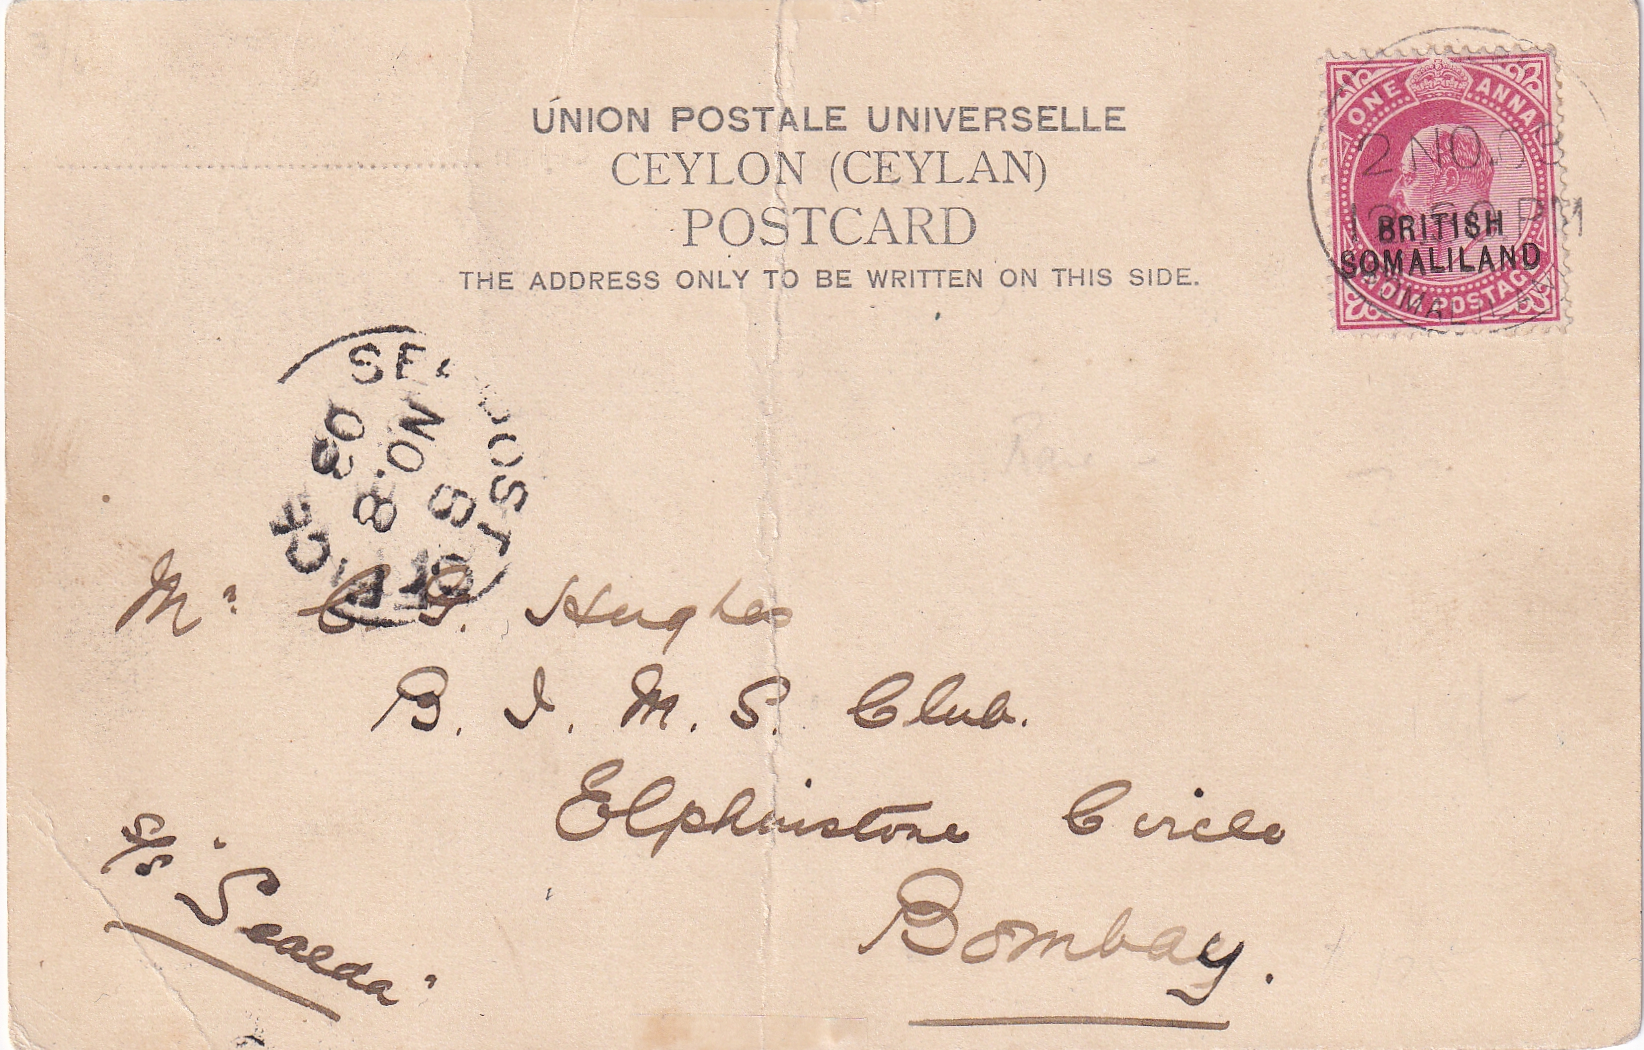 UNION POSTALE UNIVERSELLE
CEYLON (CEYLAN)
POSTCARD
THE ADDRESS ONLY TO BE WRITTEN ON THIS SIDE.
ONE ANNA
2 NO. 03
PM
BRITISH
SOMALILAND
POSTAGE
SEA POST OFFICE
S
8 NO
03
Mr C G. Hughes
B. I. M. S. Club.
Elphinstone Circle
Bombay.
S/S "